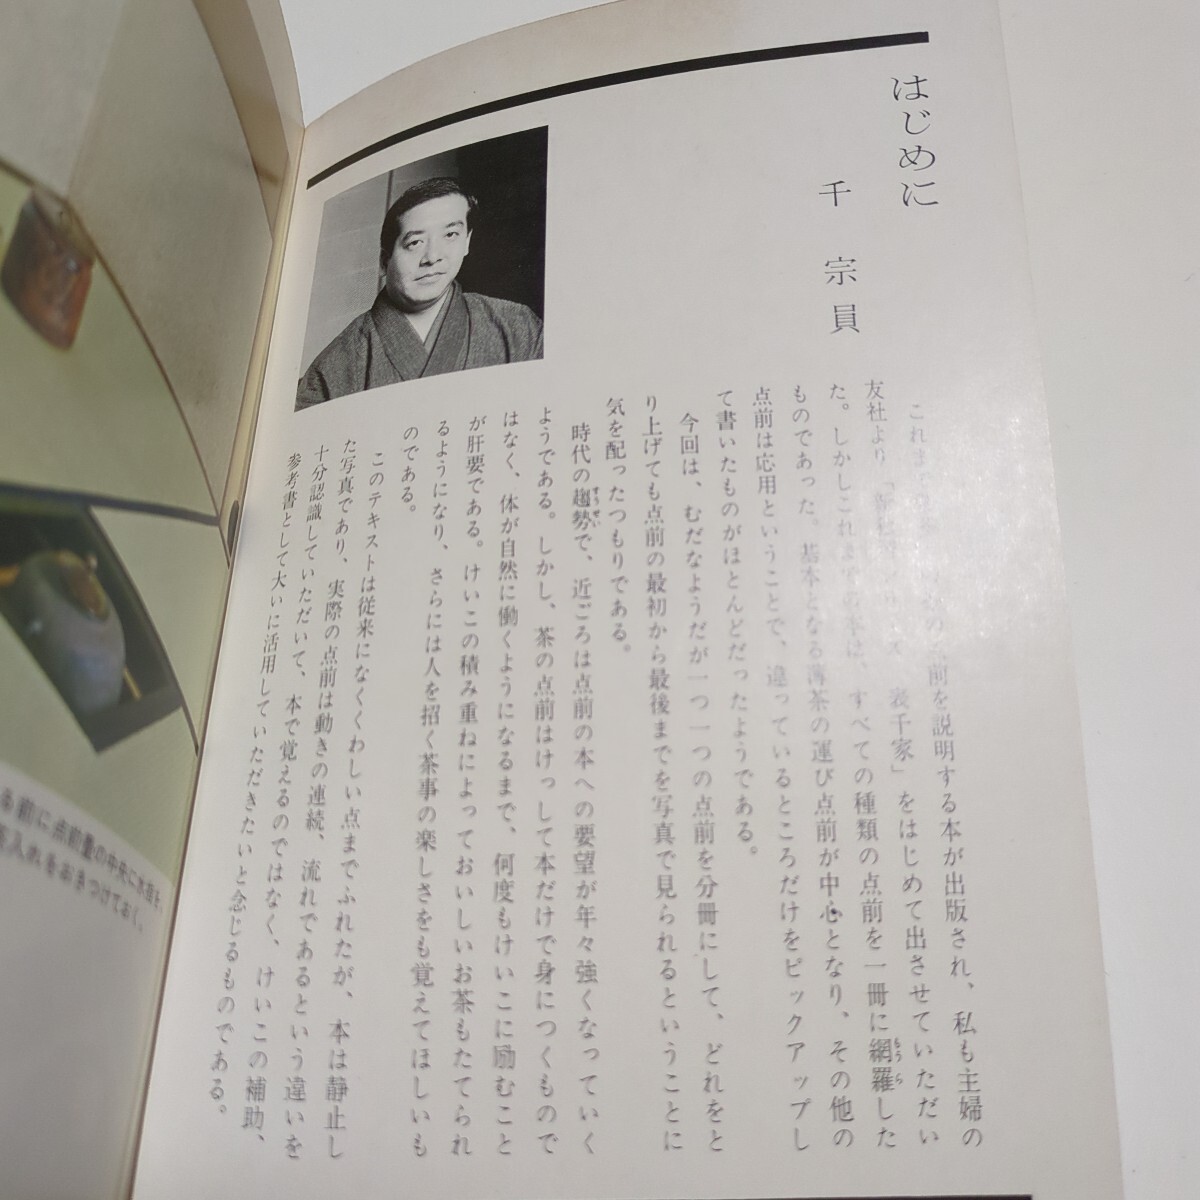 はじめに
千宗員
これま
の点前を説明する本が出版され、私も主婦の
友社より「
表千家」をはじめて出させていただい
た。しかしこれまでの本は、すべての種類の点前を一冊に網羅した
ものであった。基本となる薄茶の運び点前が中心となり、その他の
点前は応用ということで、違っているところだけをピックアップし
て書いたものがほとんどだったようである。
今回は、むだなようだが一つ一つの点前を分冊にして、どれをと
り上げても点前の最初から最後までを写真で見られるということに
気を配ったつもりである。
時代の趨勢で、近ごろは点前の本への要望が年々強くなっていく
ようである。しかし、茶の点前はけっして本だけで身につくもので
はなく、体が自然に働くようになるまで、何度もけいこに励むこと
が肝要である。けいこの積み重ねによっておいしいお茶もたてられ
るようになり、さらには人を招く茶事の楽しさをも覚えてほしいも
のである。
このテキストは従来になくくわしい点までふれたが、本は静止し
た写真であり、実際の点前は動きの連続、流れであるという違いを
十分認識していただいて、本で覚えるのではなく、けいこの補助、
参考書として大いに活用していただきたいと念じるものである。
る前に点前畳の中央に水指を、
茶入れをおきつけておく。